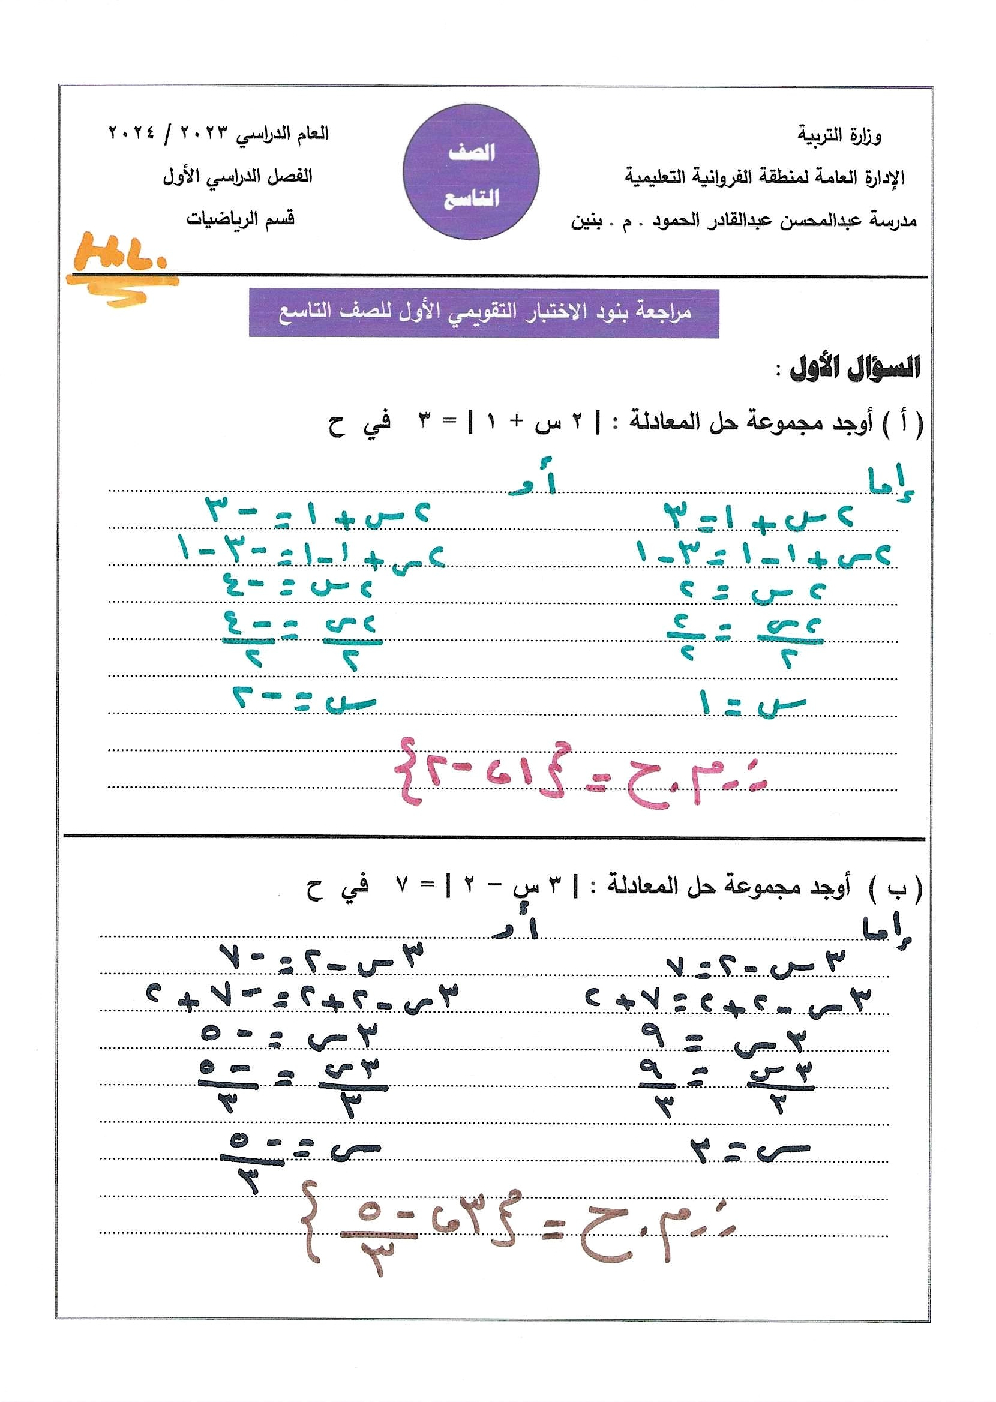 وزارة التربية
الإدارة العامة لمنطقة الفروانية التعليمية
مدرسة عبدالمحسن عبدالقادر الحمود . م . بنين
الصف
التاسع
العام الدراسي ٢٠٢٣ / ٢٠٢٤
الفصل الدراسي الأول
قسم الرياضيات
H.L.
مراجعة بنود الاختبار التقويمي الأول للصف التاسع
السؤال الأول :
( أ ) أوجد مجموعة حل المعادلة : | ٢ س + ١ | = ٣ في ح
إما أو
٢ س + ١ = ٣ ٢ س + ١ = -٣
٢ س + ١ - ١ = ٣ - ١ ٢ س + ١ - ١ = -٣ - ١
٢ س = ٢ ٢ س = -٤
٢س/٢ = ٢/٢ ٢س/٢ = -٤/٢
س = ١ س = -٢
∴ م.ح = {١ ، -٢}
( ب ) أوجد مجموعة حل المعادلة : | ٣ س - ٢ | = ٧ في ح
إما أو
٣ س - ٢ = ٧ ٣ س - ٢ = -٧
٣ س - ٢ + ٢ = ٧ + ٢ ٣ س - ٢ + ٢ = -٧ + ٢
٣ س = ٩ ٣ س = -٥
٣س/٣ = ٩/٣ ٣س/٣ = -٥/٣
س = ٣ س = -٥/٣
∴ م.ح = {٣ ، -٥/٣}